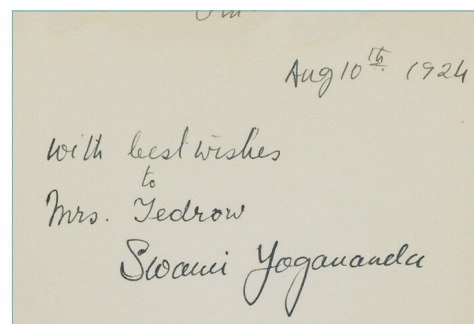 Aug 10th 1924
with best wishes
to
Mrs. Tedrow
Swami Yogananda